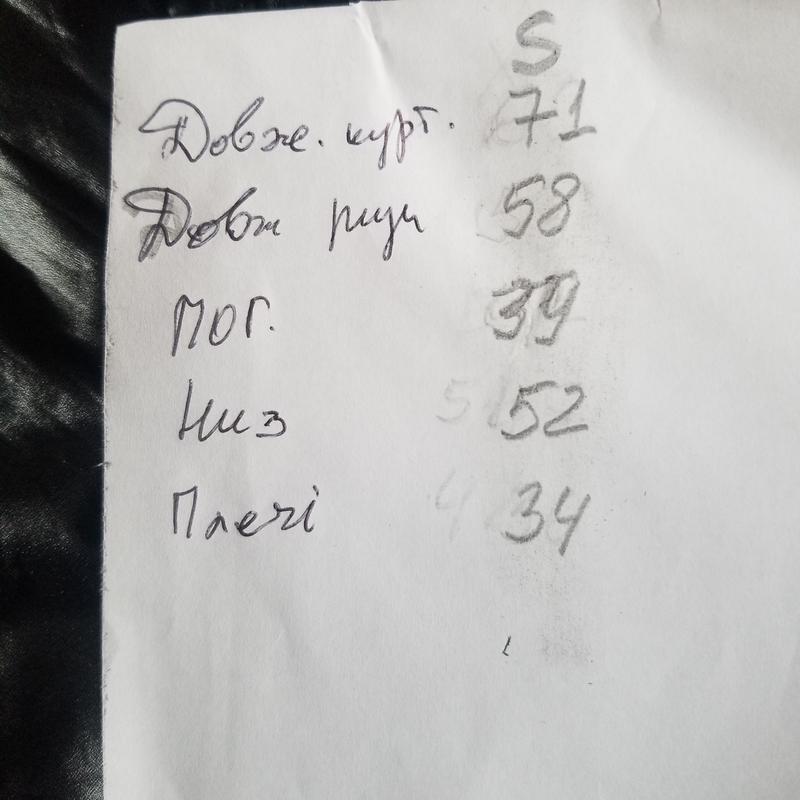 S
Довже. курт. 71
Довж руки 58
ПОГ. 39
Низ 52
Плечі 34